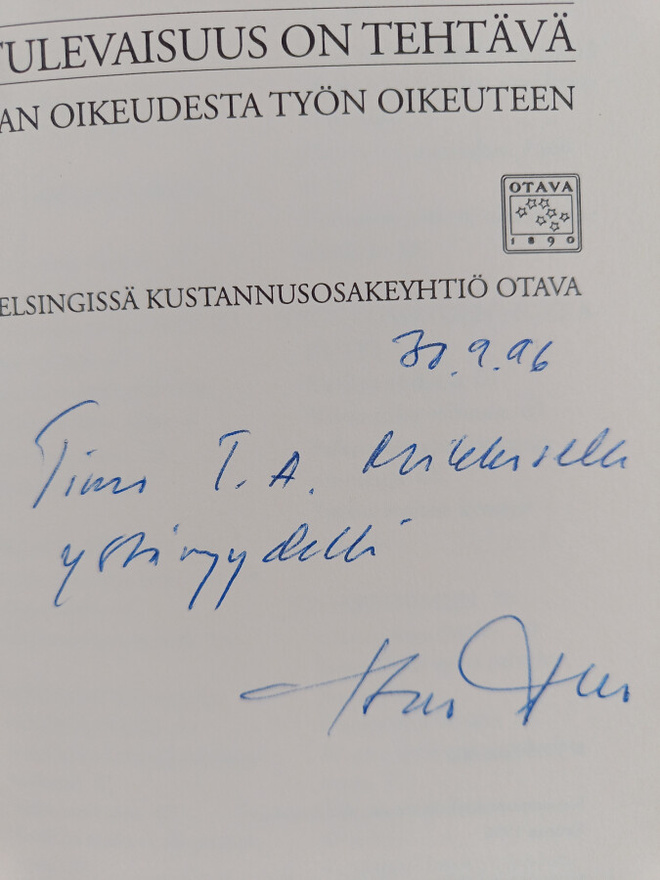 TULEVAISUUS ON TEHTÄVÄ
AN OIKEUDESTA TYÖN OIKEUTEEN
OTAVA
1890
ELSINGISSÄ KUSTANNUSOSAKEYHTIÖ OTAVA
30.9.96
Timo T. A. Mikkoselle
ystävyydellä